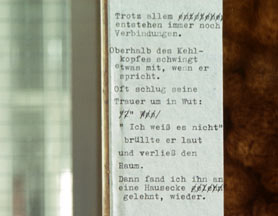 Trotz allem
entstehen immer noch
Verbindungen.
Oberhalb des Kehl-
kopfes schwingt
etwas mit, wenn er
spricht.
Oft schlug seine
Trauer um in Wut:
" Ich weiß es nicht"
brüllte er laut
und verließ den
Raum.
Dann fand ich ihn an
eine Hausecke
gelehnt, wieder.